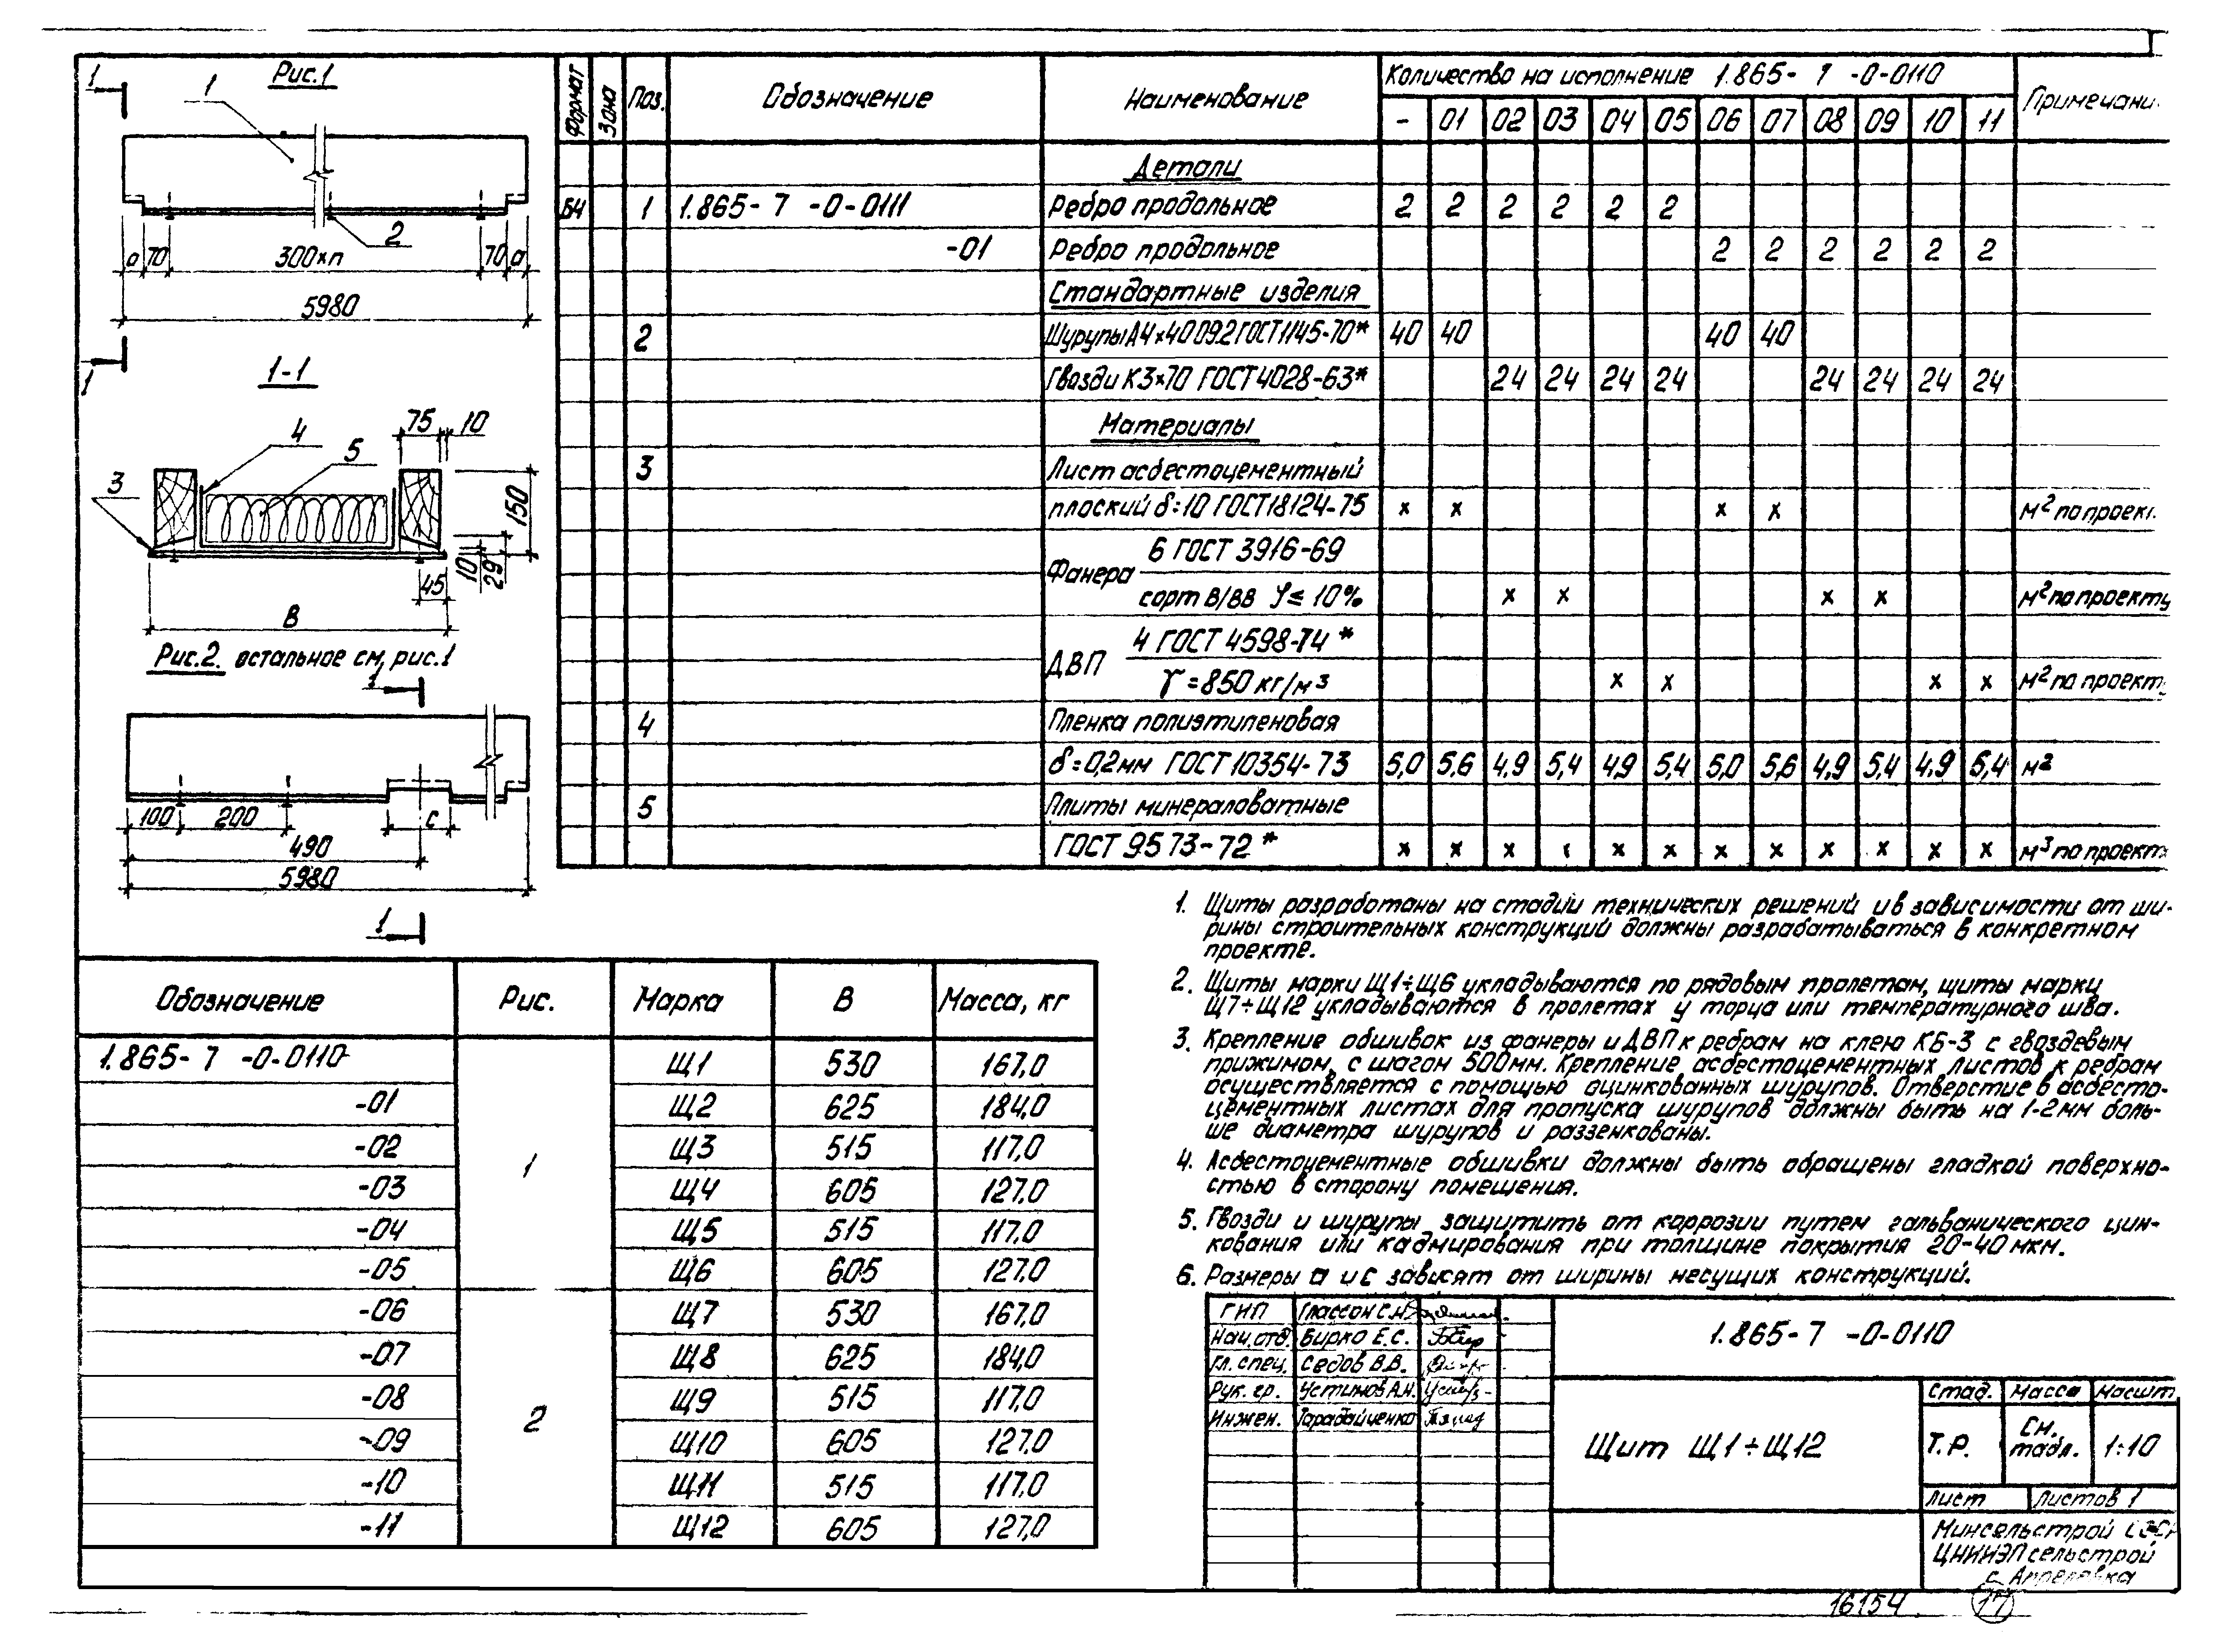 Рис.1
1
1
2
а 70 300хп 70 а
5980
1
1-1
75 10
4
5
3
150
10
29
45
В
Рис.2. остальное см, рис.1
1
100 200 с
490
5980
1
Формат Зона Поз. Обозначение Наименование Количество на исполнение 1.865- 7 -0-0110
- 01 02 03 04 05 06 07 08 09 10 11
Детали
БЧ 1 1.865- 7 -0-0111 Ребро продольное 2 2 2 2 2 2
-01 Ребро продольное 2 2 2 2 2 2
Стандартные изделия
2 Шурупы А4х40 09.2 ГОСТ 1145-70* 40 40 40 40
Гвозди К3х70 ГОСТ 4028-63* 24 24 24 24 24 24 24 24
Материалы
3 Лист асбестоцементный
плоский δ=10 ГОСТ 18124-75 х х х х м² по
6 ГОСТ 3916-69
Фанера
сорт В/ВВ ≤ 10% х х х х м² по проекту
4 ГОСТ 4598-74*
ДВП
γ=850 кг/м³ х х х х м² по проект
4 Пленка полиэтиленовая
δ=0,2мм ГОСТ 10354-73 5,0 5,6 4,9 5,4 4,9 5,4 5,0 5,6 4,9 5,4 4,9 5,4 м²
5 Плиты минераловатные
ГОСТ 9573-72* х х х х х х х х х х х м³ по проект
1. Щиты разработаны на стадии технических решений и в зависимости от ши-
рины строительных конструкций должны разрабатываться в конкретном
проекте.
2. Щиты марки Щ1÷Щ6 укладываются по рядовым пролетам, щиты марки
Щ7÷Щ12 укладываются в пролетах у торца или температурного шва.
3. Крепление обшивок из фанеры и ДВП к ребрам на клею КБ-3 с гвоздевым
прижимом, с шагом 500мм. Крепление асбестоцементных листов к ребрам
осуществляется с помощью оцинкованных шурупов. Отверстие в асбесто-
цементных листах для пропуска шурупов должны быть на 1-2мм боль-
ше диаметра шурупов и раззенкованы.
4. Асбестоцементные обшивки должны быть обращены гладкой поверхно-
стью в сторону помещения.
5. Гвозди и шурупы защитить от коррозии путем гальванического цин-
кования или кадмирования при толщине покрытия 20-40 мкм.
6. Размеры а и с зависят от ширины несущих конструкций.
Обозначение Рис. Марка В Масса, кг
1.865- 7 -0-0110 1 Щ1 530 167,0
-01 Щ2 625 184,0
-02 Щ3 515 117,0
-03 Щ4 605 127,0
-04 Щ5 515 117,0
-05 Щ6 605 127,0
-06 2 Щ7 530 167,0
-07 Щ8 625 184,0
-08 Щ9 515 117,0
-09 Щ10 605 127,0
-10 Щ11 515 117,0
-11 Щ12 605 127,0
ГИП Глассон С.И.
Нач.отд. Бирко Е.С.
Гл. спец. Седов В.В.
Рук. гр. Устинов А.Н.
Инжен. Тарабайченко
1.865- 7 -0-0110
Щит Щ1÷Щ12
Стад. Масса Масшт
Т.Р. См. табл. 1:10
Лист Листов 1
Минсельстрой
ЦНИИЭПсельстрой
с. Апрелевка
16154 17